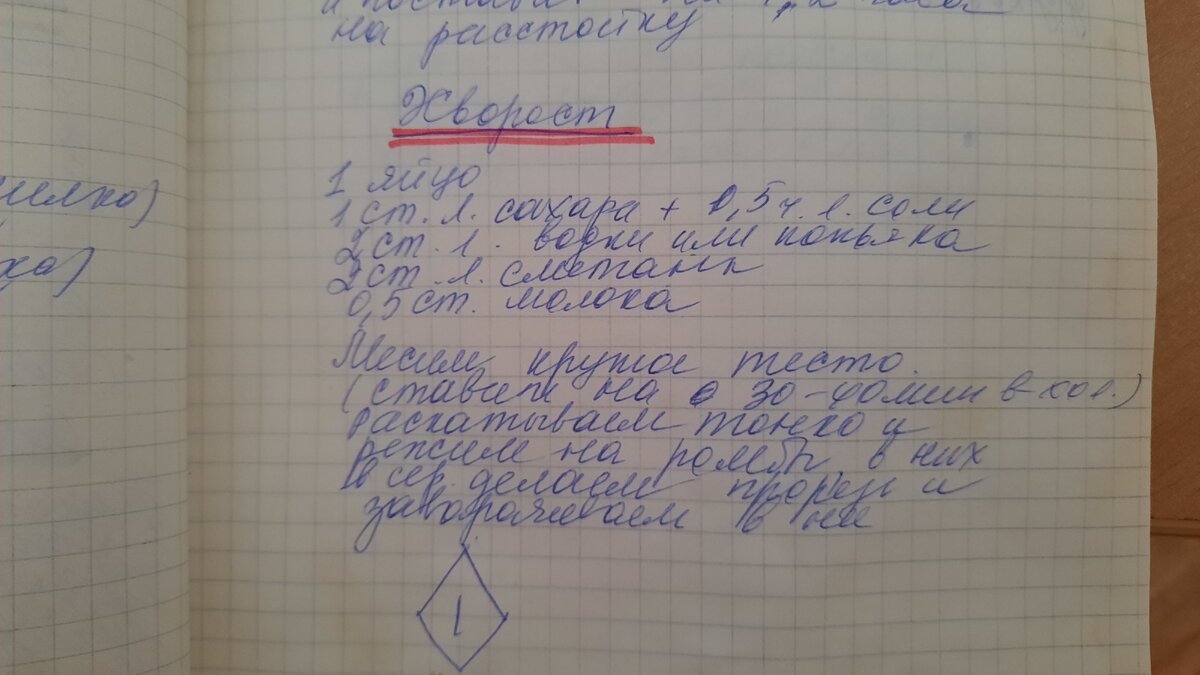 на расстойку
Хворост
1 яйцо
1 ст. л. сахара + 0,5 ч. л. соли
2 ст. л. водки или коньяка
2 ст. л. сметаны
0,5 ст. молока
Месим крутое тесто.
(ставим на 30-40 мин в хол.)
раскатываем тонко и
режим на ромбы, в них
в сер. делаем прорезь и
заворачиваем в нее